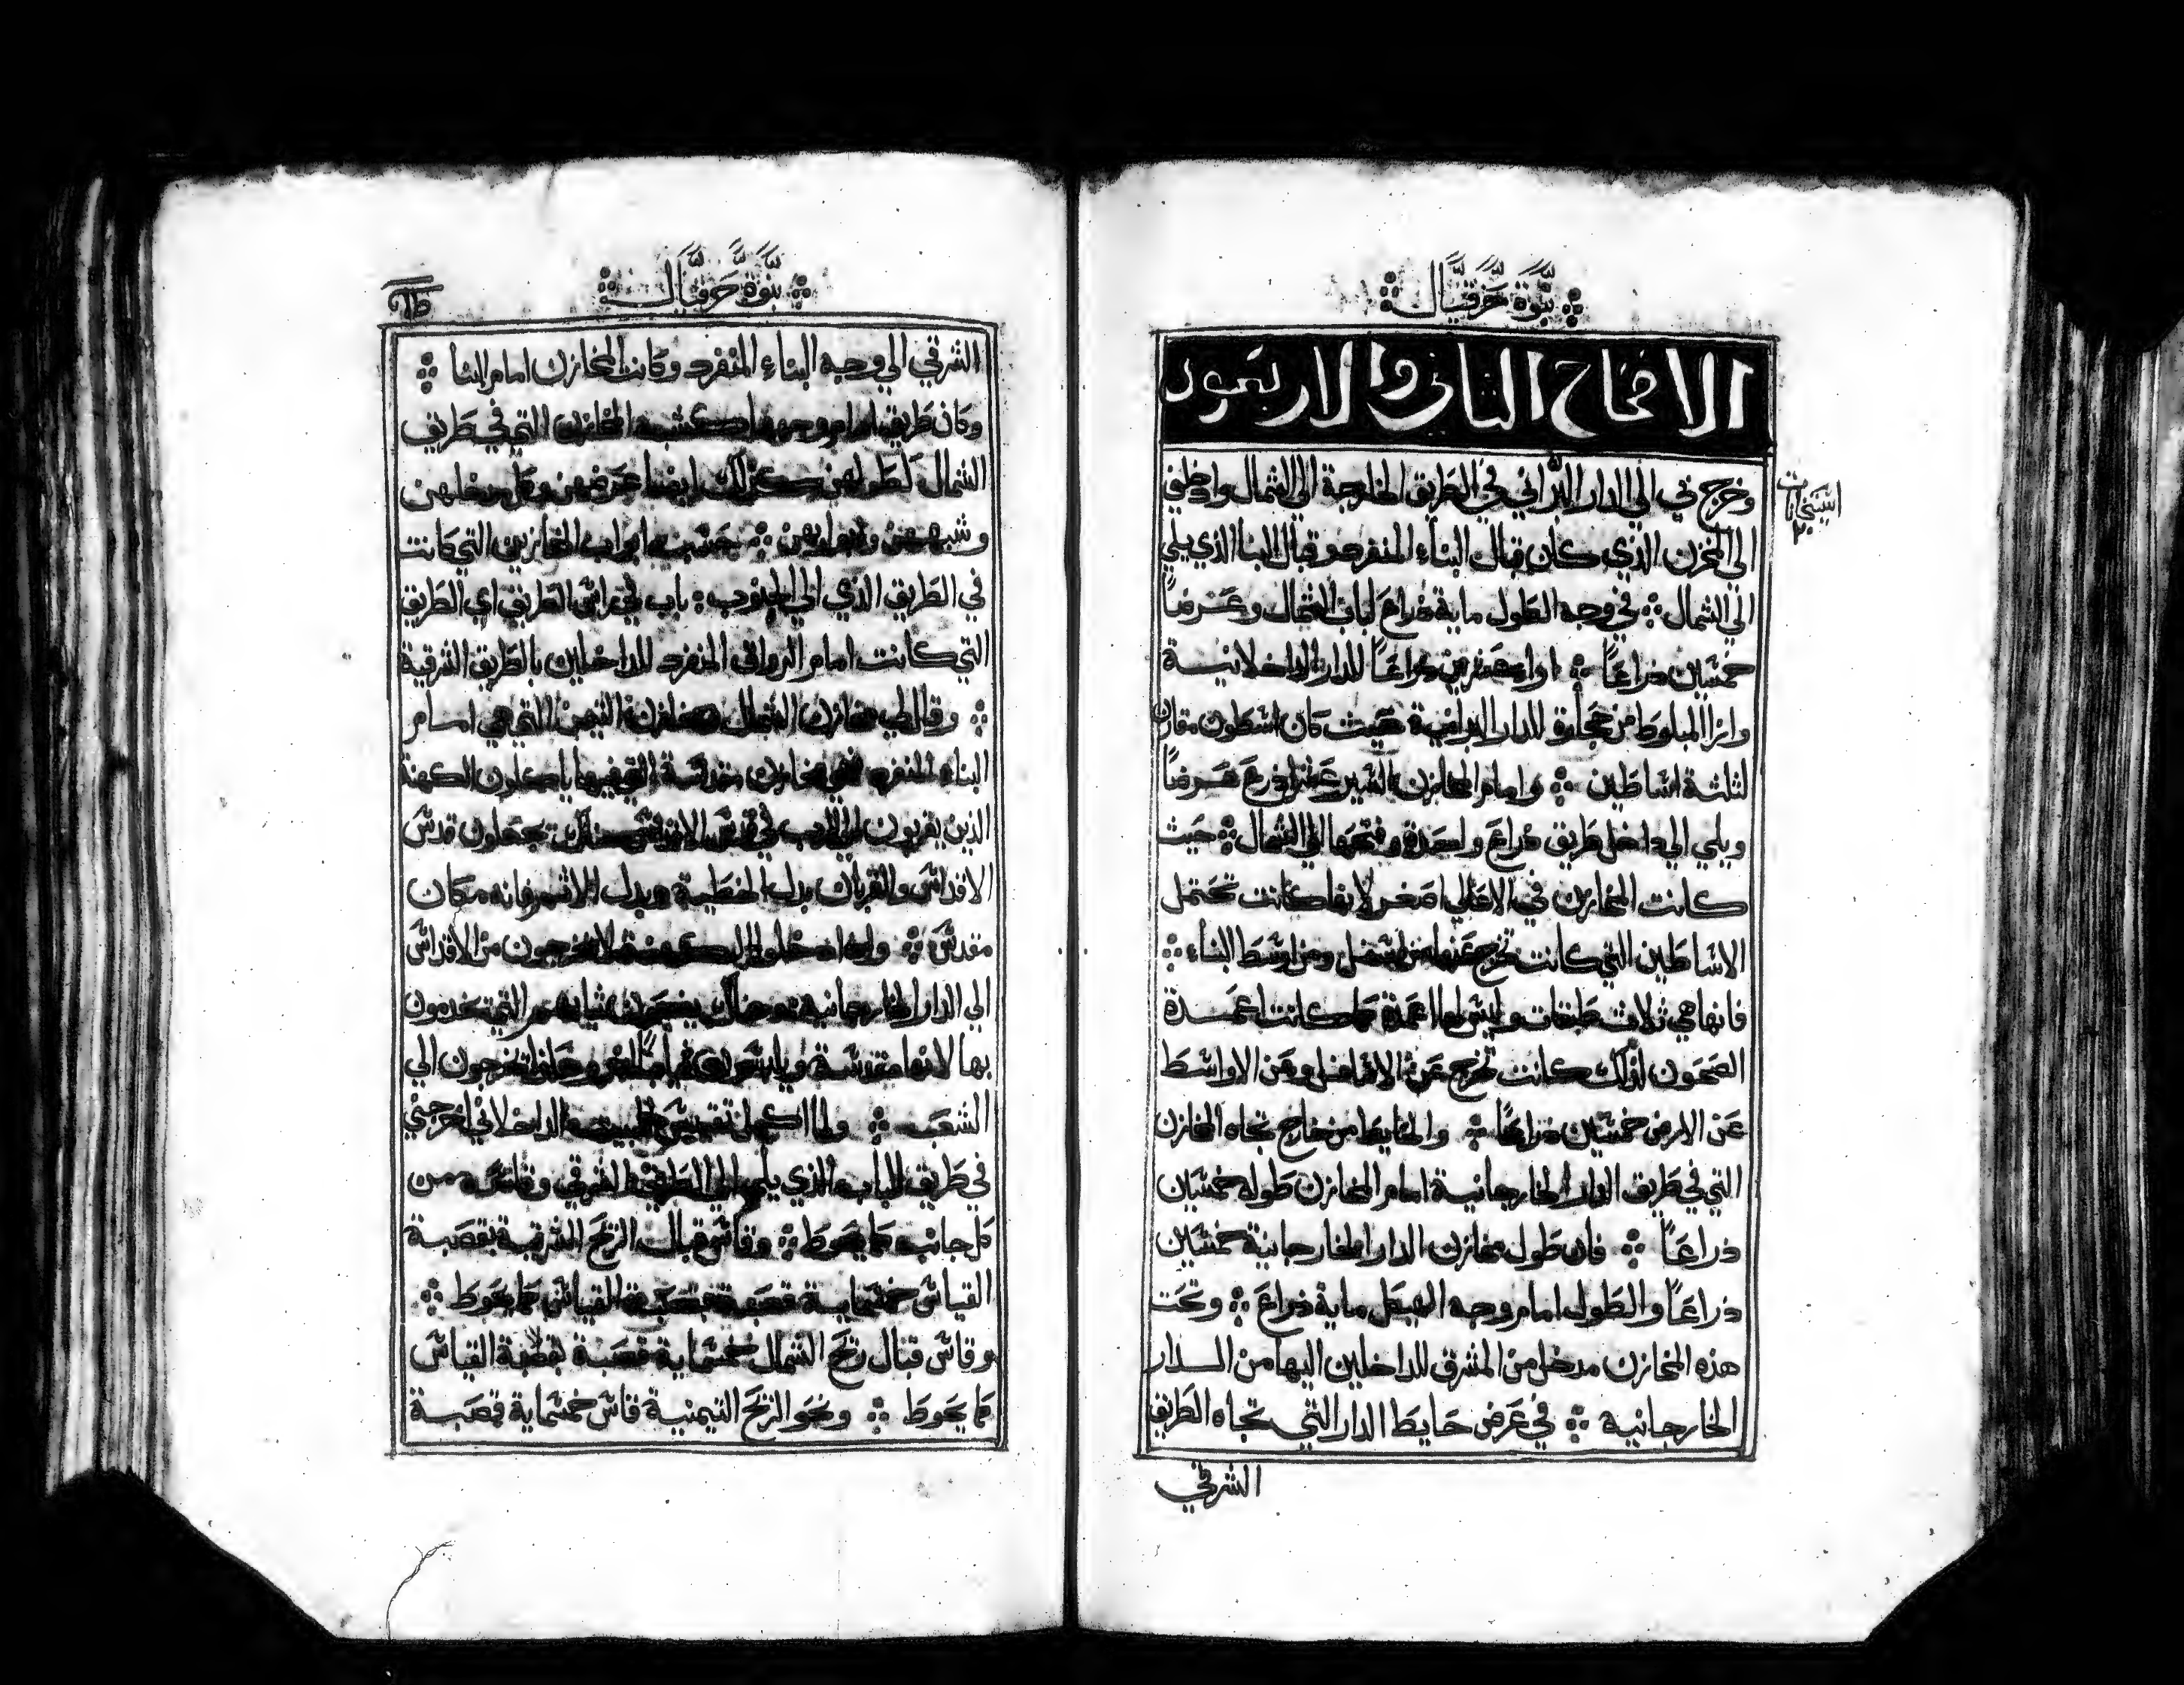 نبوة حزقيال
الاصحاح الثاني والاربعون
وخرج بي الي الدار البراني في الطريق الخارجة الي الشمال وادخلني
الي المخزن الذي كان قبال البناء المنفرد وقبال البنا الذي يلي
الي الشمال في وجه الطول ماية ذراع لباب الشمال وعرضاً
خمسين ذراعاً ازا عشرين ذراعاً للدار الداخلانية
وازا المبلوط من حجارة للدار البرانية حيث كان اسطون مقارن
لثلثة اساطين وامام المخازن عشر اذرع عرضاً
ويلي الي داخل طريق ذراع واحدة وفتحها الي الشمال حيث
كانت المخازن في الاعالي اصغر لانها كانت تحتمل
الاساطين التي كانت تخرج عنها من اسفل ومن اوسط البناء
فانها هي ثلاث طبقات وليس لها اعمدة كما كانت اعمدة
الصحون لذلك كانت تخرج عن الاسافل وعن الاواسط
عن الارض خمسين ذراعاً والحايط من خارج تجاه المخازن
التي في طريق الدار الخارجانية امام المخازن طوله خمسين
ذراعاً فان طول مخازن الدار الخارجانية خمسين
ذراعاً والطول امام وجه الهيكل ماية ذراع وتحت
هذه المخازن مدخل من المشرق للداخلين اليها من الدار
الخارجانية في عرض حايط الدار التي تجاه الطريق
الشرقي
نبوة حزقيال
الشرقي الي وجه البناء المنفرد وكانت المخازن امام البنا
وكان طريق امام وجهها كشبه المخازن التي في طريق
الشمال كطولهن كذلك ايضا عرضهن وكل مدخلهن
وشبههن وابوابهن كحسب ابواب المخازن التي كانت
في الطريق الذي الي الجنوب باب في راس الطريق اي الطريق
التي كانت امام الرواق المنفرد للداخلين بالطريق الشرقية
وقال لي مخازن الشمال ومخازن التيمن التي هي امام
البناء المنفرد هي مخازن مقدسة التي فيها ياكلون الكهنة
الذين يقربون الي الرب في قدس الاقداس هناك يجعلون قدس
الاقداس والقربان بدل الخطية وبدل الاثم فانه مكان
مقدس واذا دخلوا الكهنة لا يخرجون من الاقداس
الي الدار الخارجانية وهناك يضعون ثيابهم التي يخدمون
بها لانها مقدسة ويلبسون ثياباً اخر وهكذا يخرجون الي
الشعب ولما اكمل البيت الداخلاني اخرجني
في طريق الباب الذي يلي الي الطريق الشرقي وقاسه من
كل جانب كما يحوط وقاس قبال الريح الشرقية بقصبة
القياس خمسماية قصبة بقصبة القياس كما يحوط
وقاس قبال ريح الشمال خمسماية قصبة بقصبة القياس
كما يحوط ونحو الريح التيمنية قاس خمسماية قصبة